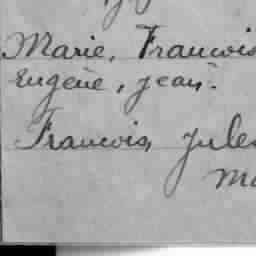 Marie, Francois
Eugène, jean.
Francois, Jules